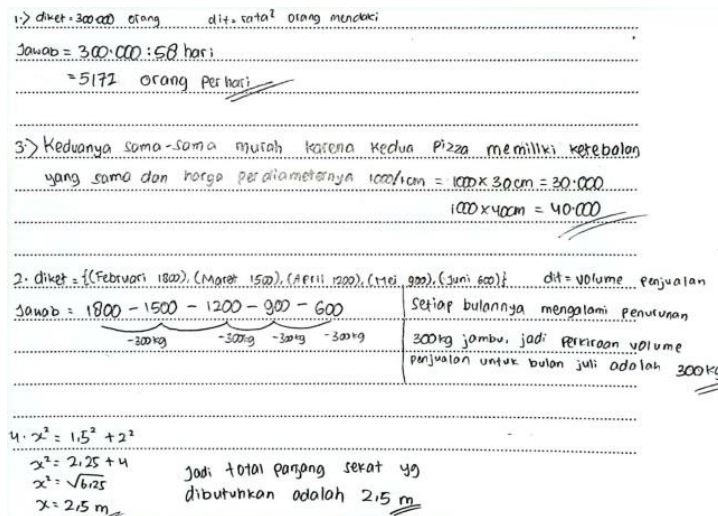 1.> diket = 300.000 orang dit = rata² orang mendaki
Jawab = 300.000 : 58 hari
= 5172 orang perhari
3.> Keduanya sama-sama murah karena kedua Pizza memiliki ketebalan
yang sama dan harga perdiameternya 1000/1cm = 1000 x 30 cm = 30.000
1000 x 40cm = 40.000
2. diket = {(Februari 1800), (Maret 1500), (April 1200), (Mei 900), (Juni 600)} dit = volume penjualan
Jawab = 1800 - 1500 - 1200 - 900 - 600
-300kg -300kg -300kg -300kg
Setiap bulannya mengalami penurunan
300kg jambu, jadi perkiraan volume
penjualan untuk bulan juli adalah 300kg
4. x² = 1,5² + 2²
x² = 2,25 + 4
x² = √6,25
x = 2,5 m
Jadi total panjang sekat yg
dibutuhkan adalah 2,5 m